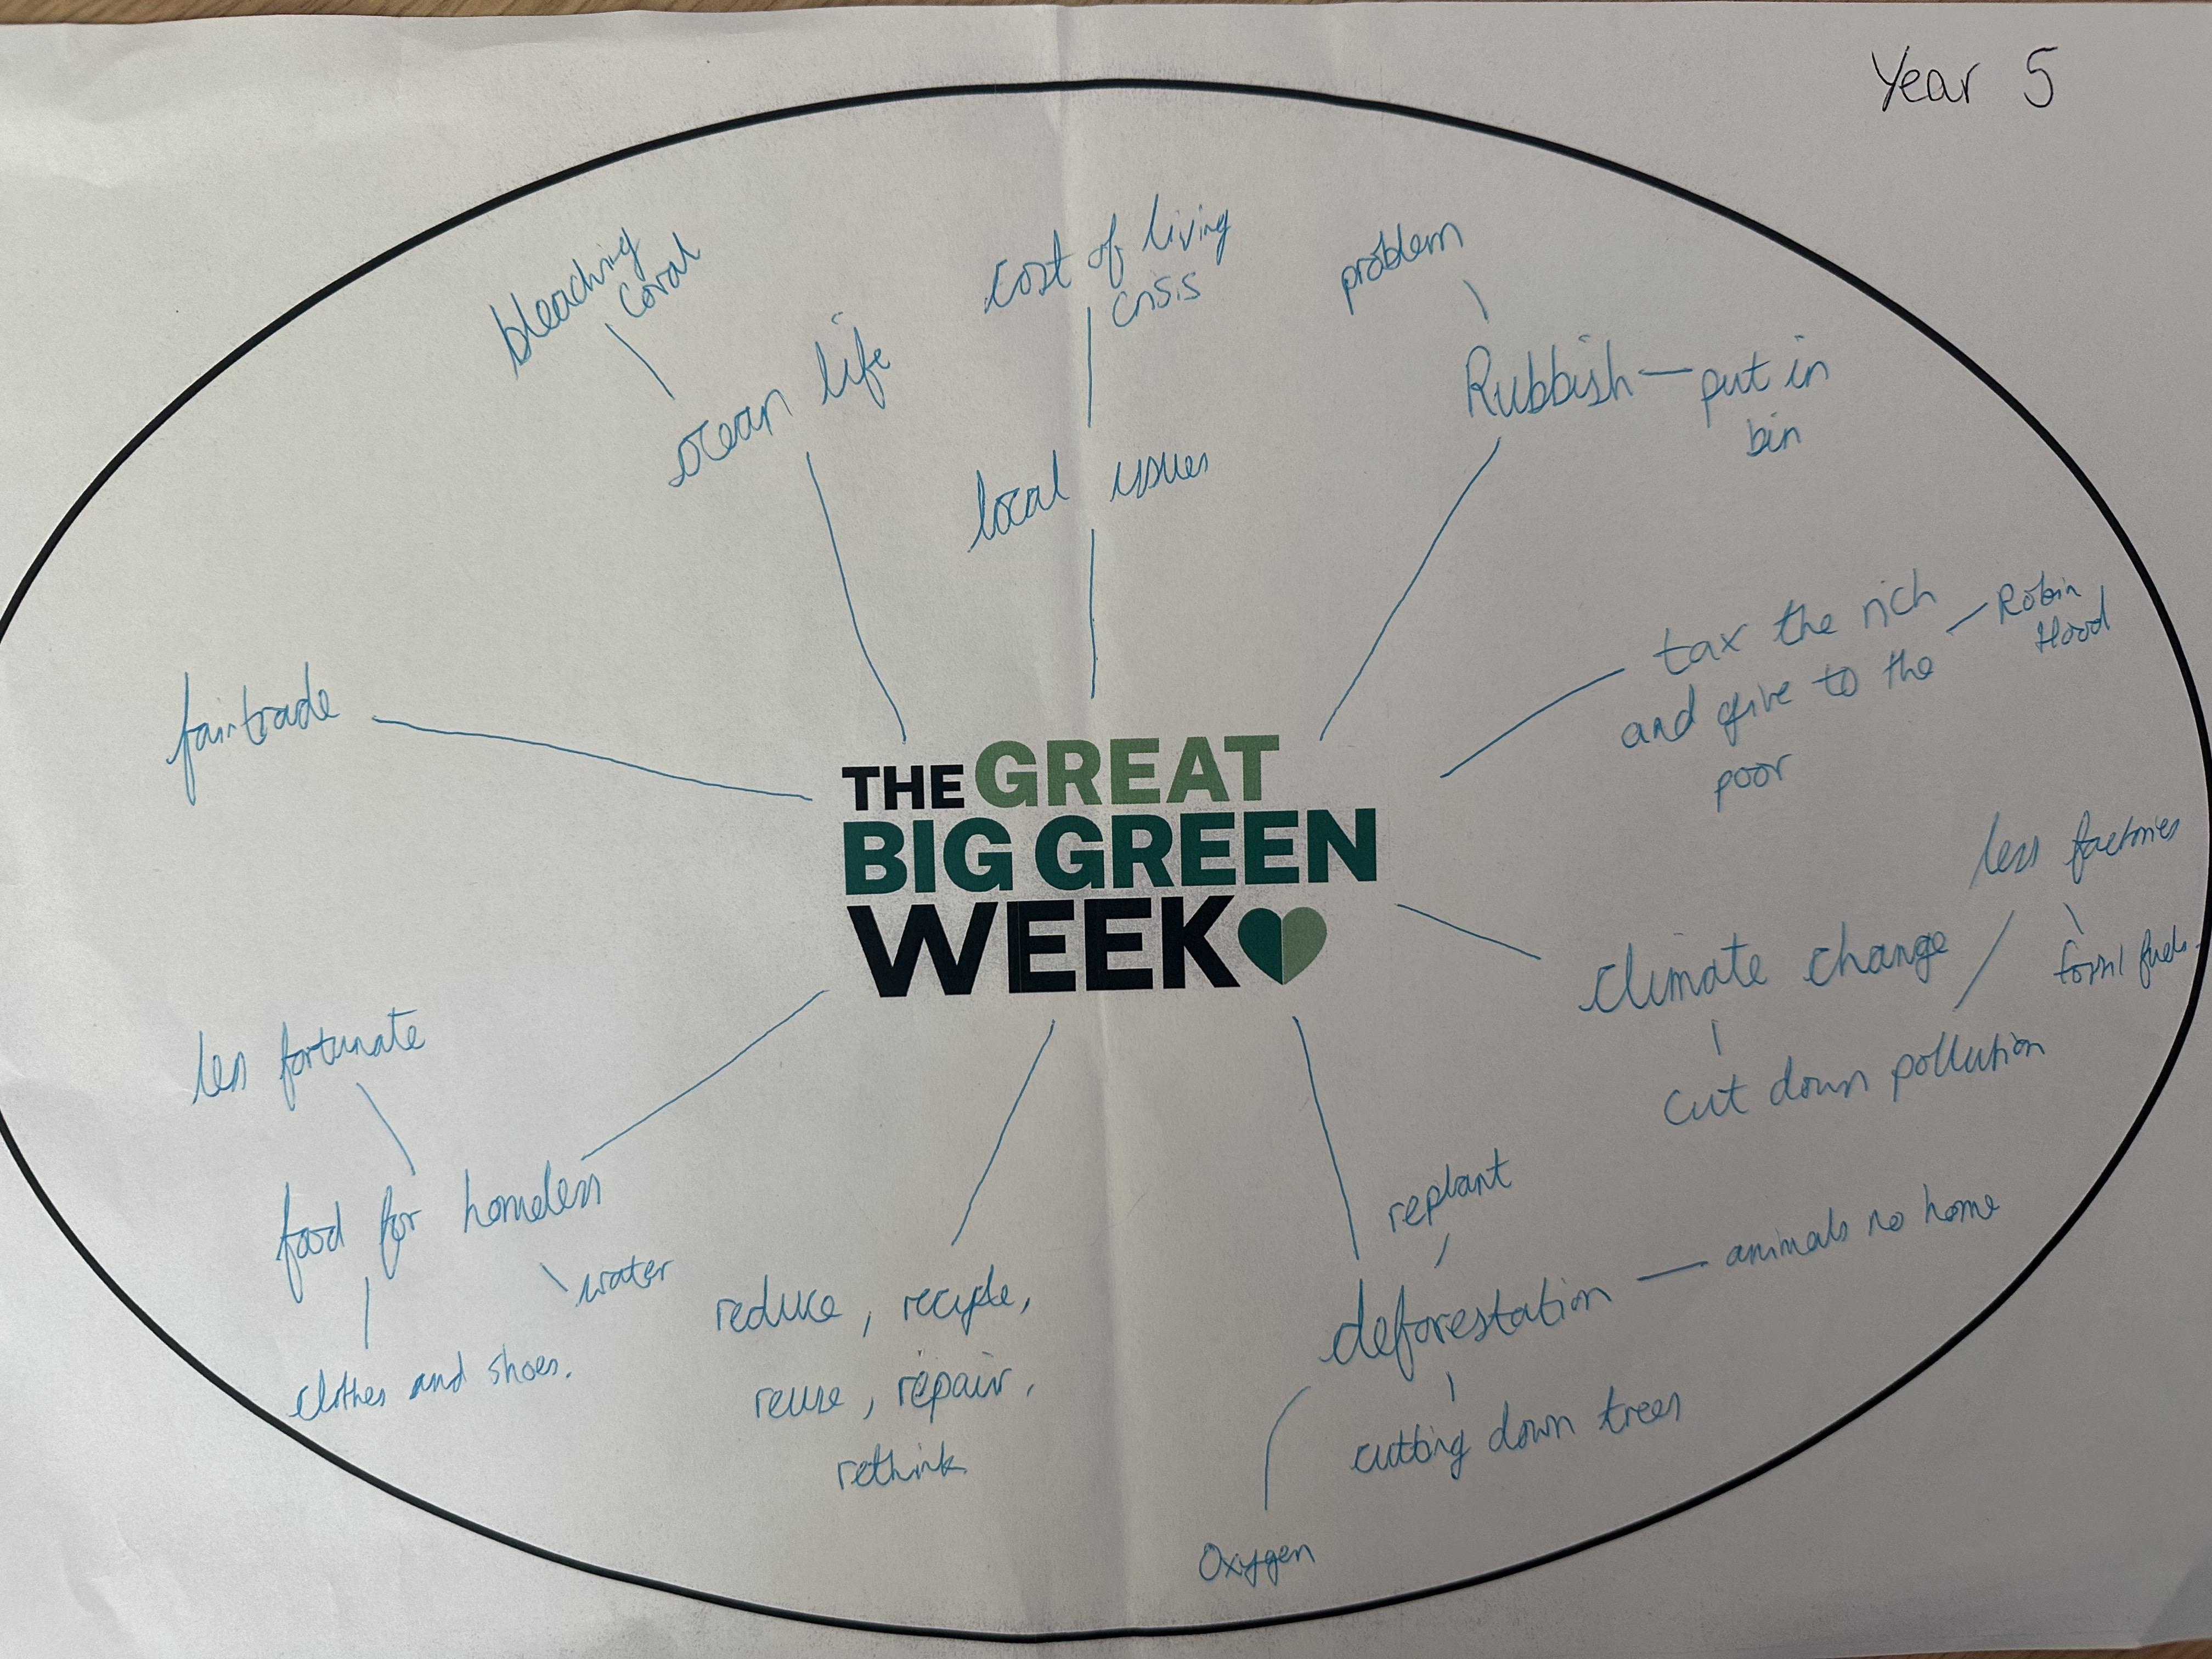 Year 5
bleaching
coral
ocean life
cost of living
crisis
local issues
problem
Rubbish — put in
bin
tax the rich
and give to the
poor
Robin
Hood
fairtrade
THE GREAT
BIG GREEN
WEEK
less factories
fossil fuels.
climate change
cut down pollution
less fortunate
food for homeless
water
clothes and shoes.
reduce, recycle,
reuse, repair,
rethink
replant
deforestation — animals no home
cutting down trees
Oxygen